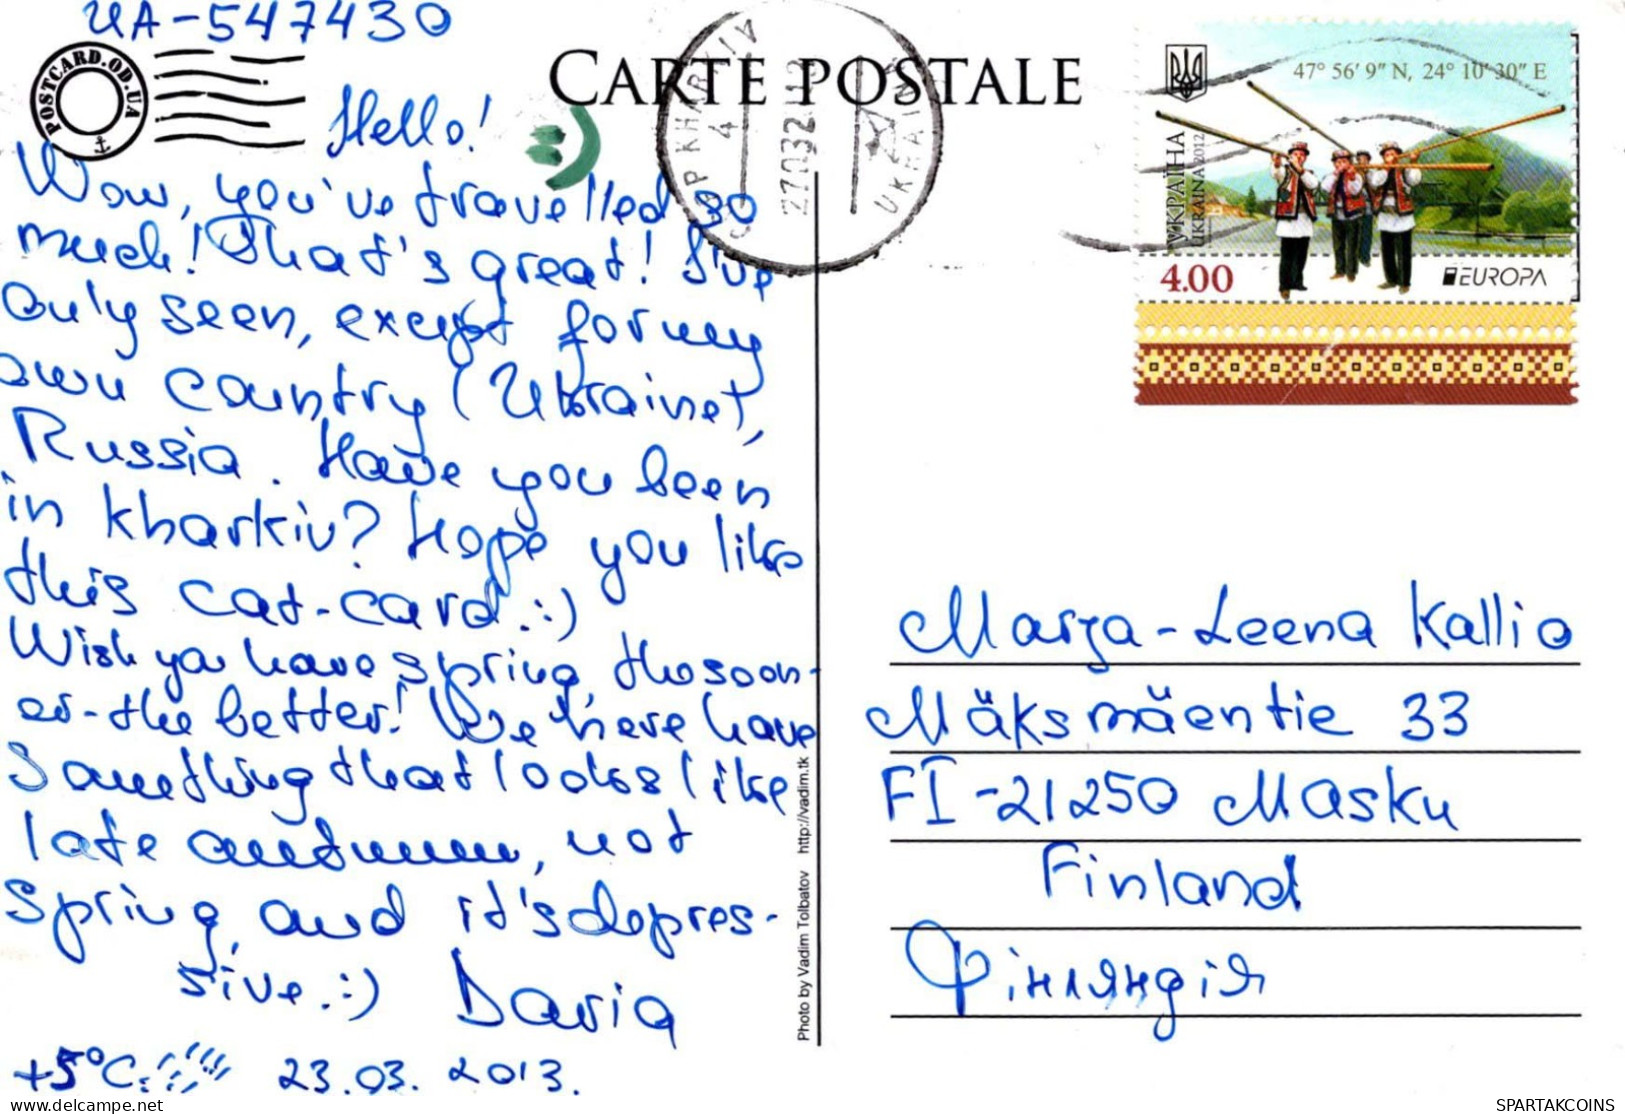 UA-547430
POSTCARD.OD.UA
CARTE POSTALE
KHARKIV
4
UKRAINE
47° 56′ 9″ N, 24° 10′ 30″ E
УКРАЇНА
UKRAINA 2012
4.00
EUROPA
Hello!
Wow, you've travelled so
much! That's great! I've
only seen, except for my
own country (Ukraine),
Russia. Have you been
in Kharkiv? Hope you like
this cat-card.:)
Wish you have spring, the soon-
er-the better! We here have
something that looks like
late autumn, not
spring, and it's depres-
sive.:) Daria
+5°C. 23.03. 2013.
Photo by Vadim Tolbatov http://vadim.tk
Marja-Leena Kallio
Mäksmäentie 33
FI-21250 Masku
Finland
Фінляндія
www.delcampe.net
SPARTAKCOINS